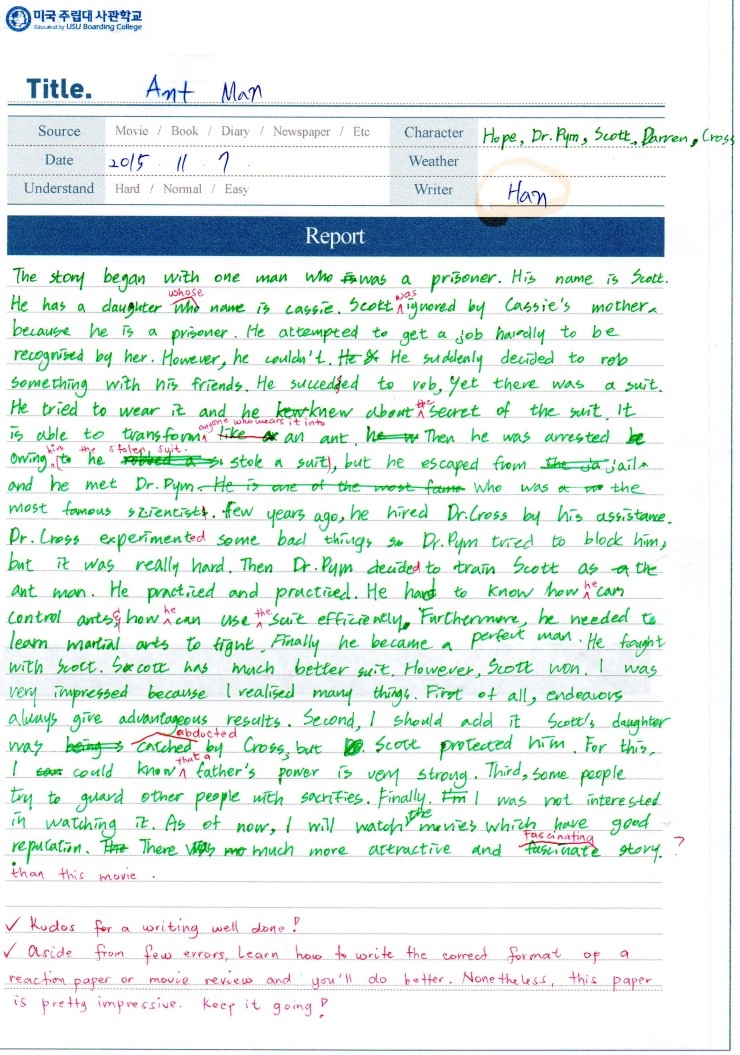 미국 주립대 사관학교
Educated by USU Boarding College
Title. Ant Man
Source Movie / Book / Diary / Newspaper / Etc Character Hope, Dr.Pym, Scott, Darren, Cross
Date 2015 . 11 . 7 . Weather
Understand Hard / Normal / Easy Writer Han
Report
The story began with one man who is was a prisoner. His name is Scott.
whose was
He has a daughter who name is cassie. Scott ignored by Cassie's mother
because he is a prisoner. He attempted to get a job hardly to be
recognised by her. However, he couldn't. He He suddenly decided to rob
something with his friends. He succeded to rob, Yet there was a suit.
He tried to wear it and he knew about the secret of the suit. It
anyone who wears it into
is able to transform like an ant. Then he was arrested
him the stolen suit.
owing to he robbed a stole a suit, but he escaped from the ja jail
and he met Dr.Pym. He is one of the most famo who was the
most famous scientist. few years ago, he hired Dr.Cross by his assistance.
Dr. Cross experimented some bad things so Dr.Pym tried to block him,
but it was really hard. Then Dr.Pym decided to train Scott as the
ant man. He practiced and practiced. He had to know how he can
control ants & how he can use the suit efficiently. Furthermore, he needed to
learn martial arts to fight. Finally he became a perfect man. He fought
with Scott. Scott has much better suit. However, Scott won. I was
very impressed because I realised many things. First of all, endeavors
always give advantageous results. Second, I should add it Scott's daughter
abducted
was being catched by Cross, but Scott protected him. For this,
that a
I can could know father's power is very strong. Third, some people
try to guard other people with sacrifies. Finally. I'm I was not interested
in watching it. As of now, I will watch the movies which have good
fascinating
reputation. The There was no much more attractive and fascinate story. ?
than this movie .
✓ Kudos for a writing well done!
✓ aside from few errors, Learn how to write the correct format of a
reaction paper or movie review and you'll do better. Nonetheless, this paper
is pretty impressive. Keep it going!